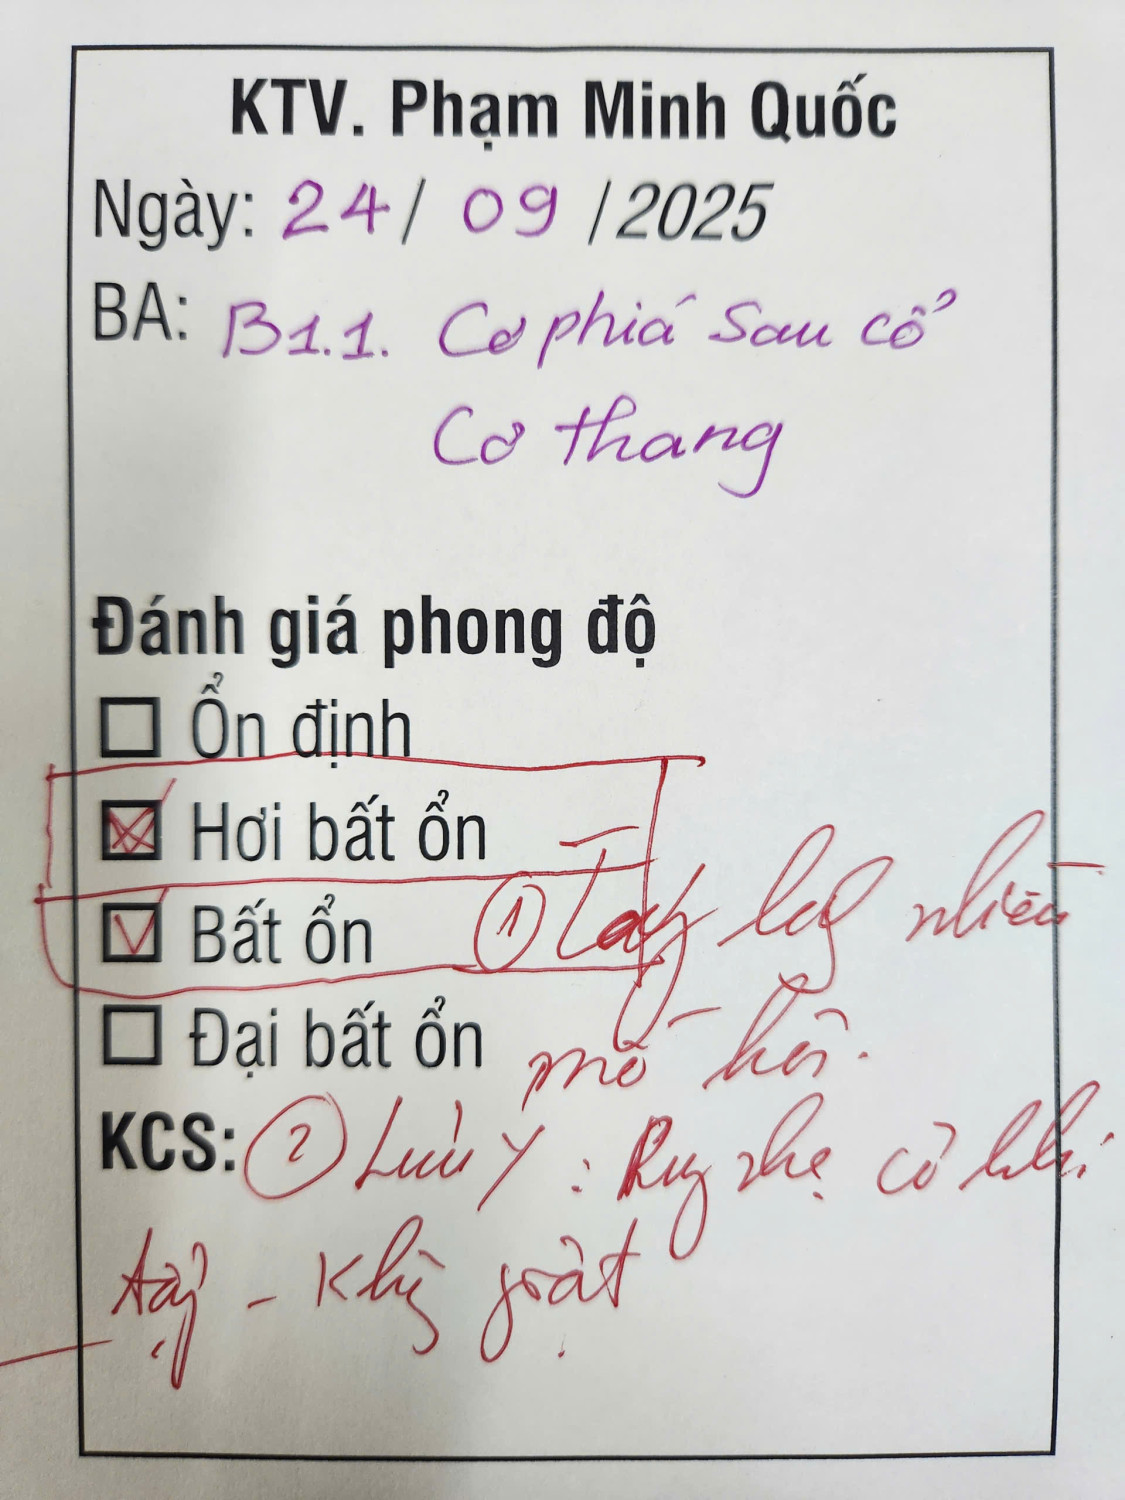 KTV. Phạm Minh Quốc
Ngày: 24 / 09 / 2025
BA: B1.1. Cơ phiá sau cổ
Cơ thang
Đánh giá phong độ
Ổn định
Hơi bất ổn
Bất ổn
① Tay lay nhiều
Đại bất ổn
mồ hôi.
KCS: ② Lưu ý: Rung nhẹ cổ khi
tẩy - Khg